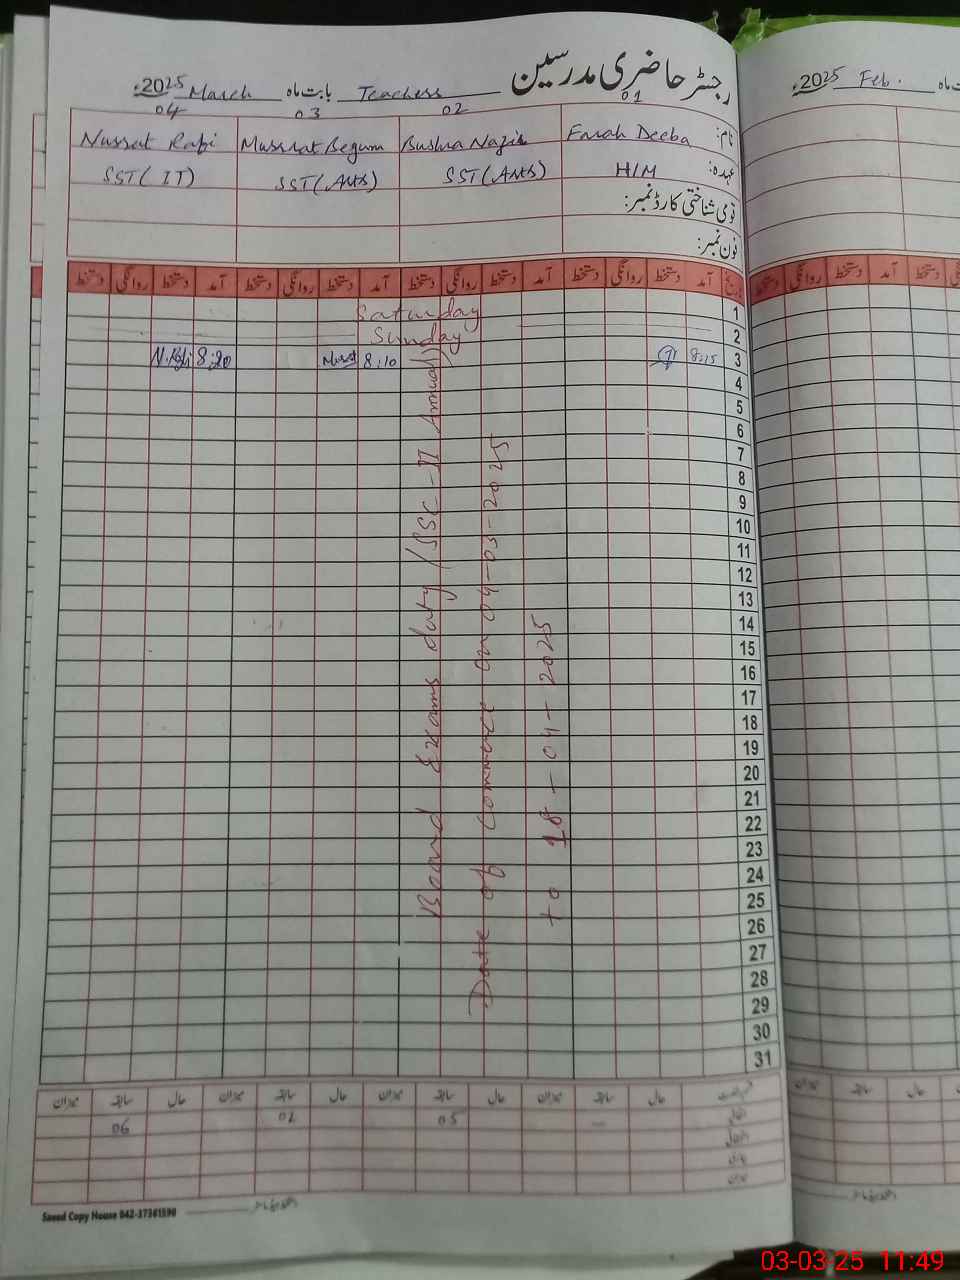 رجسٹر حاضری مدرسین
Teachers بابت ماہ March 2025ء
01 02 03 04
نام: Farah Deeba Bushra Nazir Mussrat Begum Nussat Rafi
عہدہ: H/M SST (Arts) SST (Arts) SST (IT)
قومی شناختی کارڈ نمبر:
فون نمبر:
تاریخ آمد دستخط روانگی دستخط آمد دستخط روانگی دستخط آمد دستخط روانگی دستخط آمد دستخط روانگی دستخط
1 Saturday
2 Sunday
3 8:15 8:10 8:20 N.Rafi
4
5
6
7
8
9
10
11
12
13
14
15
16
17
18
19
20
21
22
23
24
25
26
27
28
29
30
31
Board Exams duty (SSC-II Annual)
Date of commece on 04-03-2025
to 18-04-2025
حال سابقہ میزان حال سابقہ میزان حال سابقہ میزان حال سابقہ میزان
05 02 06
Saeed Copy House 042-37361590
Feb. 2025ء
03-03-25 11:49